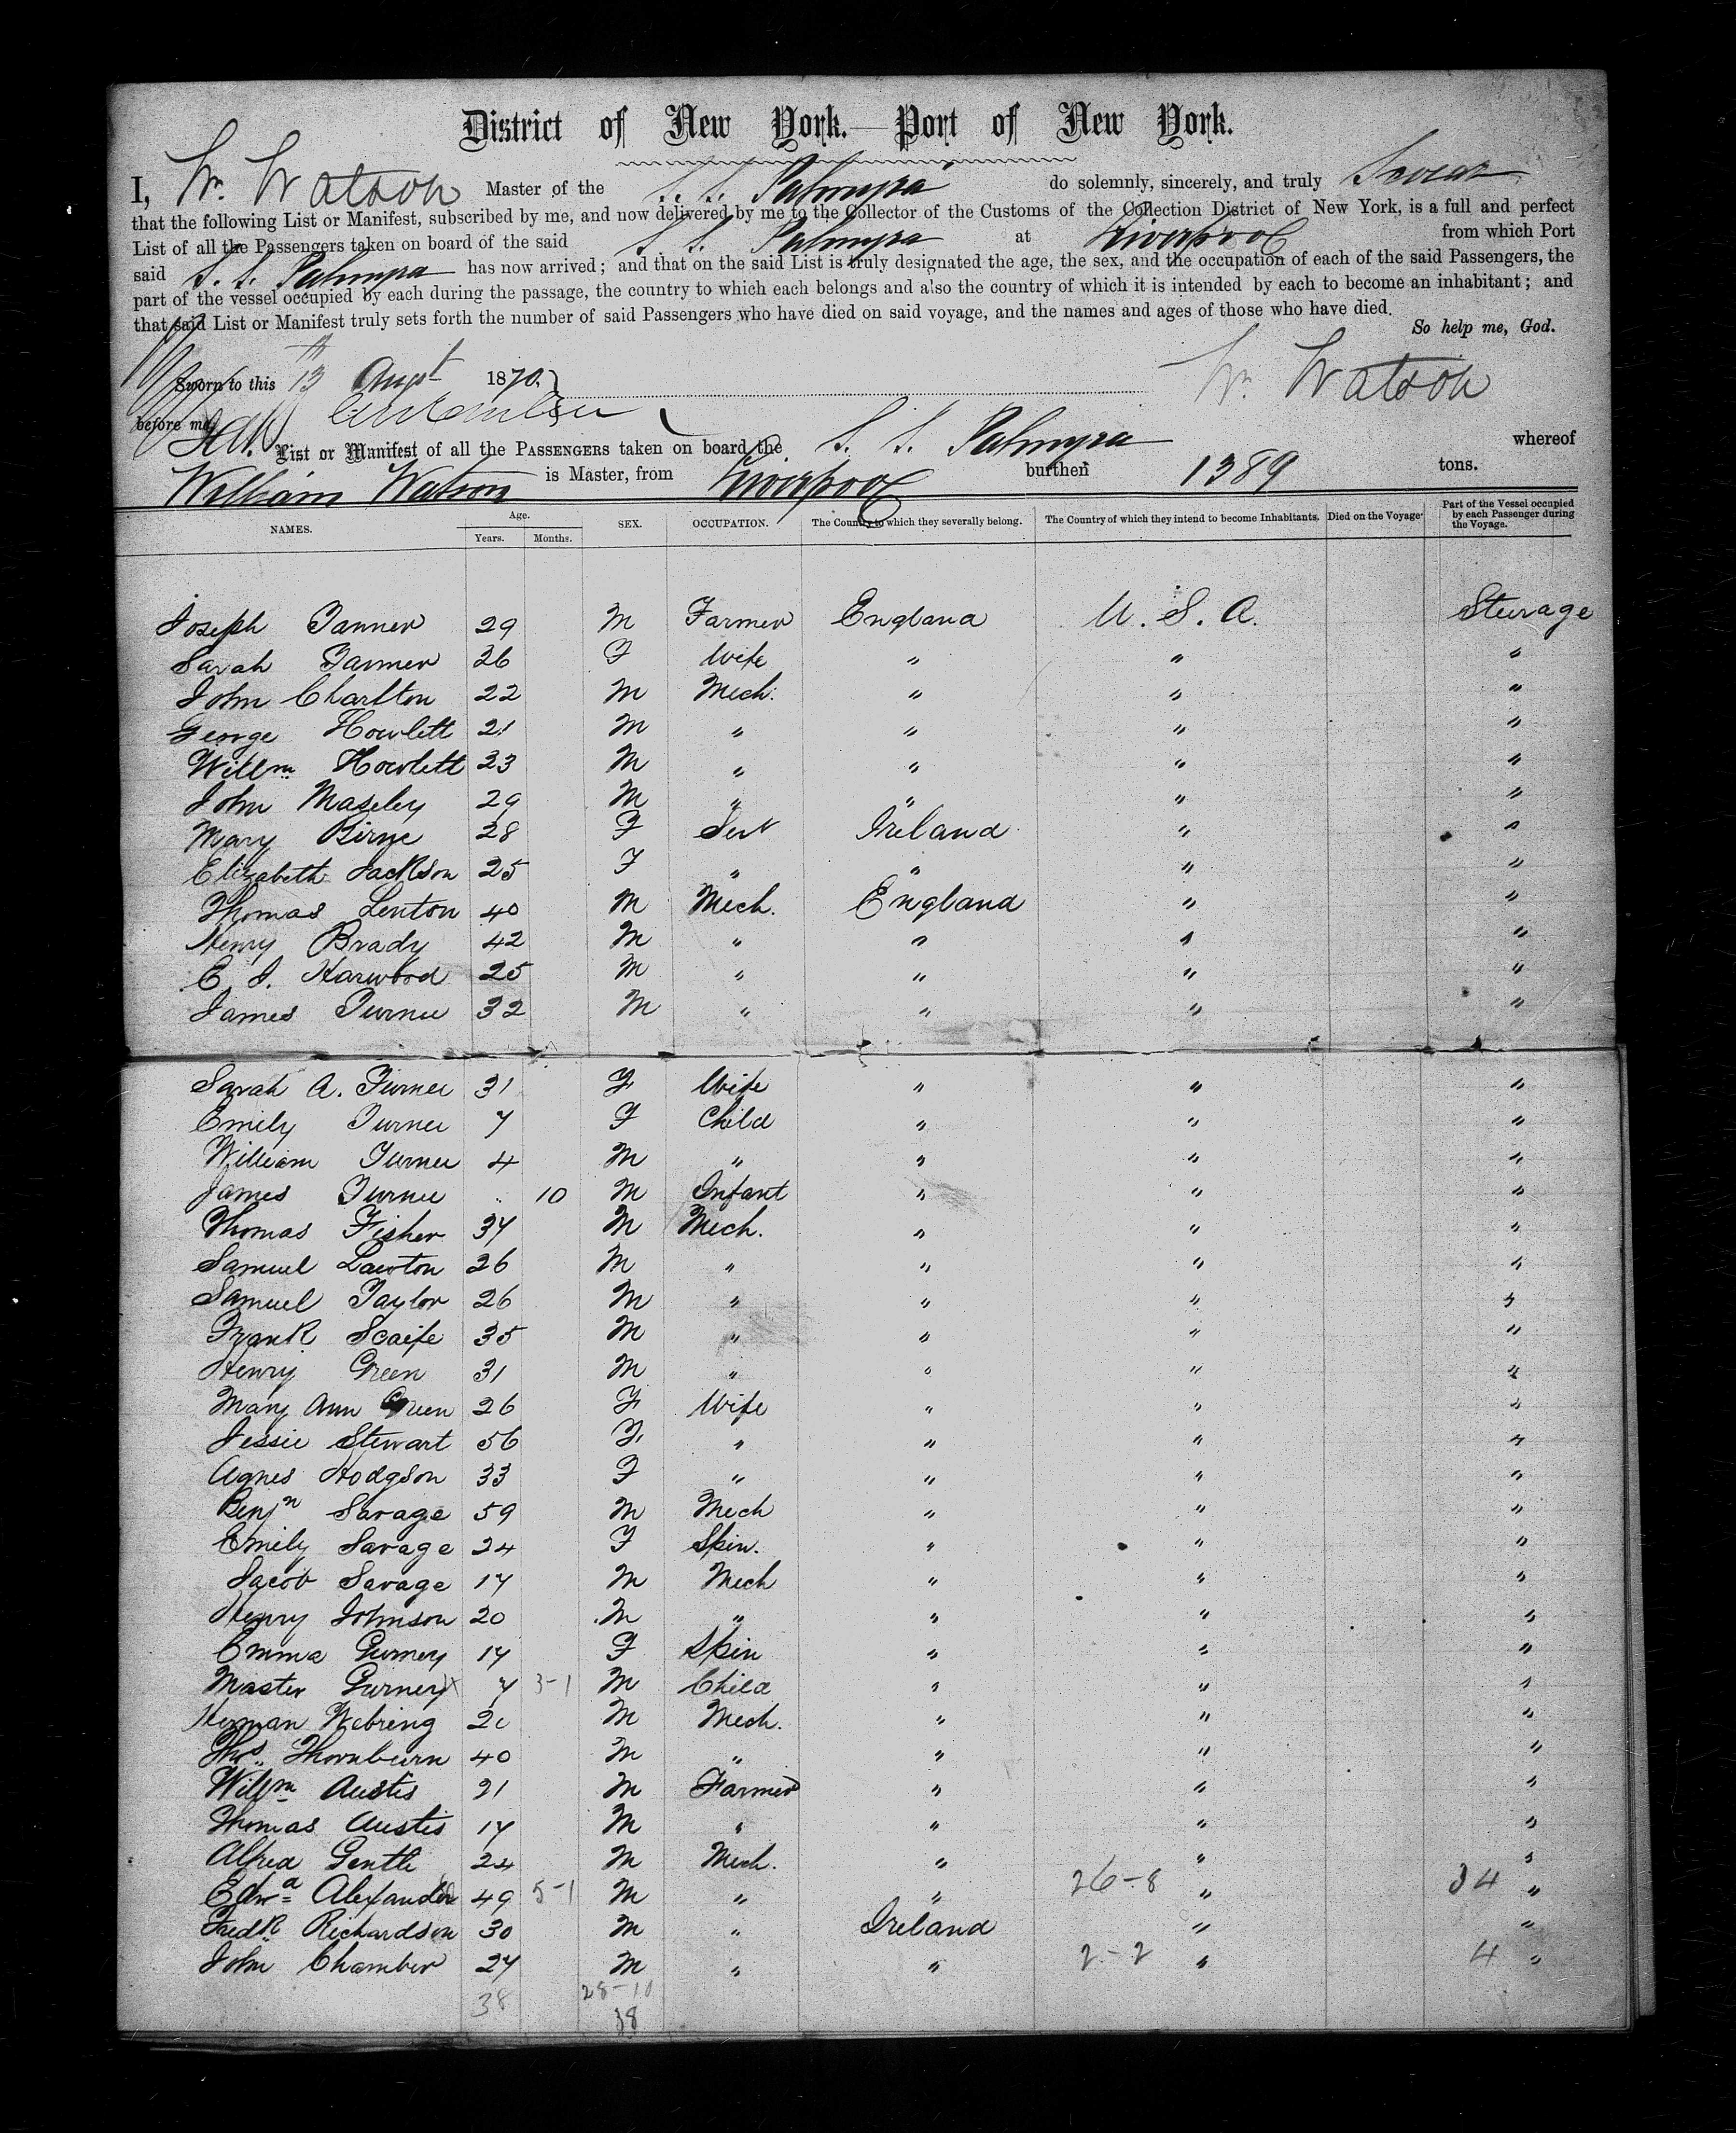 District of New York.—Port of New York.
I, Wm. Watson Master of the S. S. Palmyra do solemnly, sincerely, and truly Swear
that the following List or Manifest, subscribed by me, and now delivered by me to the Collector of the Customs of the Collection District of New York, is a full and perfect
List of all the Passengers taken on board of the said S. S. Palmyra at Liverpool from which Port
said S. S. Palmyra has now arrived; and that on the said List is truly designated the age, the sex, and the occupation of each of the said Passengers, the
part of the vessel occupied by each during the passage, the country to which each belongs and also the country of which it is intended by each to become an inhabitant; and
that said List or Manifest truly sets forth the number of said Passengers who have died on said voyage, and the names and ages of those who have died.
So help me, God.
Sworn to this 13th Augt 1870. Wm. Watson
before me
List or Manifest of all the PASSENGERS taken on board the S. S. Palmyra whereof
William Watson is Master, from Liverpool burthen 1389 tons.
NAMES. Age. Years. Months. SEX. OCCUPATION. The Country to which they severally belong. The Country of which they intend to become Inhabitants. Died on the Voyage. Part of the Vessel occupied by each Passenger during the Voyage.
Joseph Tanner 29 M Farmer England U. S. A. Steerage
Sarah Tanner 26 F Wife " " "
John Charlton 22 M Mech. " " "
George Howlett 21 M " " " "
Willm Howlett 23 M " " " "
John Maseley 29 M " " " "
Mary Birne 28 F Servt Ireland " "
Elizabeth Jackson 25 F " " " "
Thomas Lenton 40 M Mech. England " "
Henry Brady 42 M " " " "
E. J. Harwood 25 M " " " "
James Turner 32 M " " " "
Sarah A. Turner 31 F Wife " " "
Emily Turner 7 F Child " " "
William Turner 4 M " " " "
James Turner " 10 M Infant " " "
Thomas Fisher 37 M Mech. " " "
Samuel Lawton 26 M " " " "
Samuel Taylor 26 M " " " "
Frank Scaife 35 M " " " "
Henry Green 31 M " " " "
Mary Ann Green 26 F Wife " " "
Jessie Stewart 56 F " " " "
Agnes Hodgson 33 F " " " "
Benjn Savage 59 M Mech " " "
Emily Savage 24 F Spin. " " "
Jacob Savage 17 M Mech " " "
Henry Johnson 20 M " " " "
Emma Gurney 17 F Spin " " "
Master Gurney 7 3-1 M Child " " "
Herman Webring 20 M Mech. " " "
Thos. Thornburn 40 M " " " "
Willm Austis 21 M Farmer " " "
Thomas Austis 17 M " " " "
Alfred Gentle 24 M Mech. " " "
Edwd Alexander 49 5-1 M " " 26-8 " 34 "
Fredk Richardson 30 M " Ireland " "
John Chamber 27 M " " 2-2 " 4 "
38 28-10
38